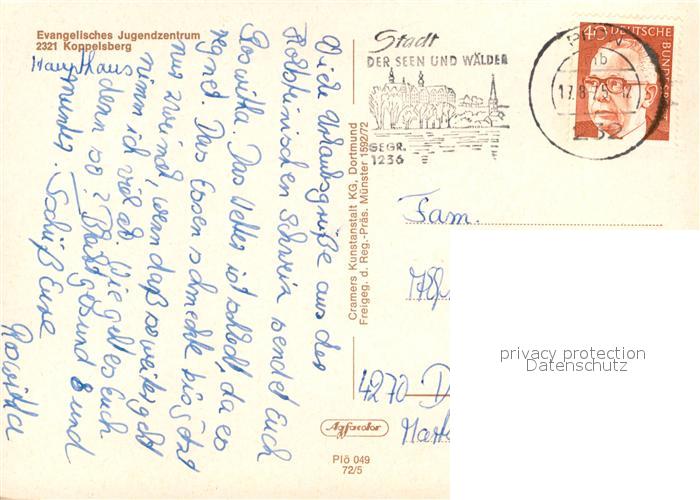 Evangelisches Jugendzentrum
2321 Koppelsberg
Haupthaus
Viele Urlaubsgrüße aus der
Holsteinischen Schweiz sendet Euch
Roswitha. Das Wetter ist schlecht, da es
regnet. Das Essen schmeckte bis jetzt
nur zweimal, wenn daß so weiter geht
nimm ich viel ab. Wie geht es Euch
denn so? Bleibt gesund & und
munter. Tschüß Eure
Roswitha
Cramers Kunstanstalt KG, Dortmund
Freigeg. d. Reg.-Präs. Münster 1592/72
Agfacolor
Plö 049
72/5
Stadt
DER SEEN UND WÄLDER
GEGR.
1236
17.8.75
232
40 DEUTSCHE BUNDESPOST
Fam.
4270 D
privacy protection
Datenschutz